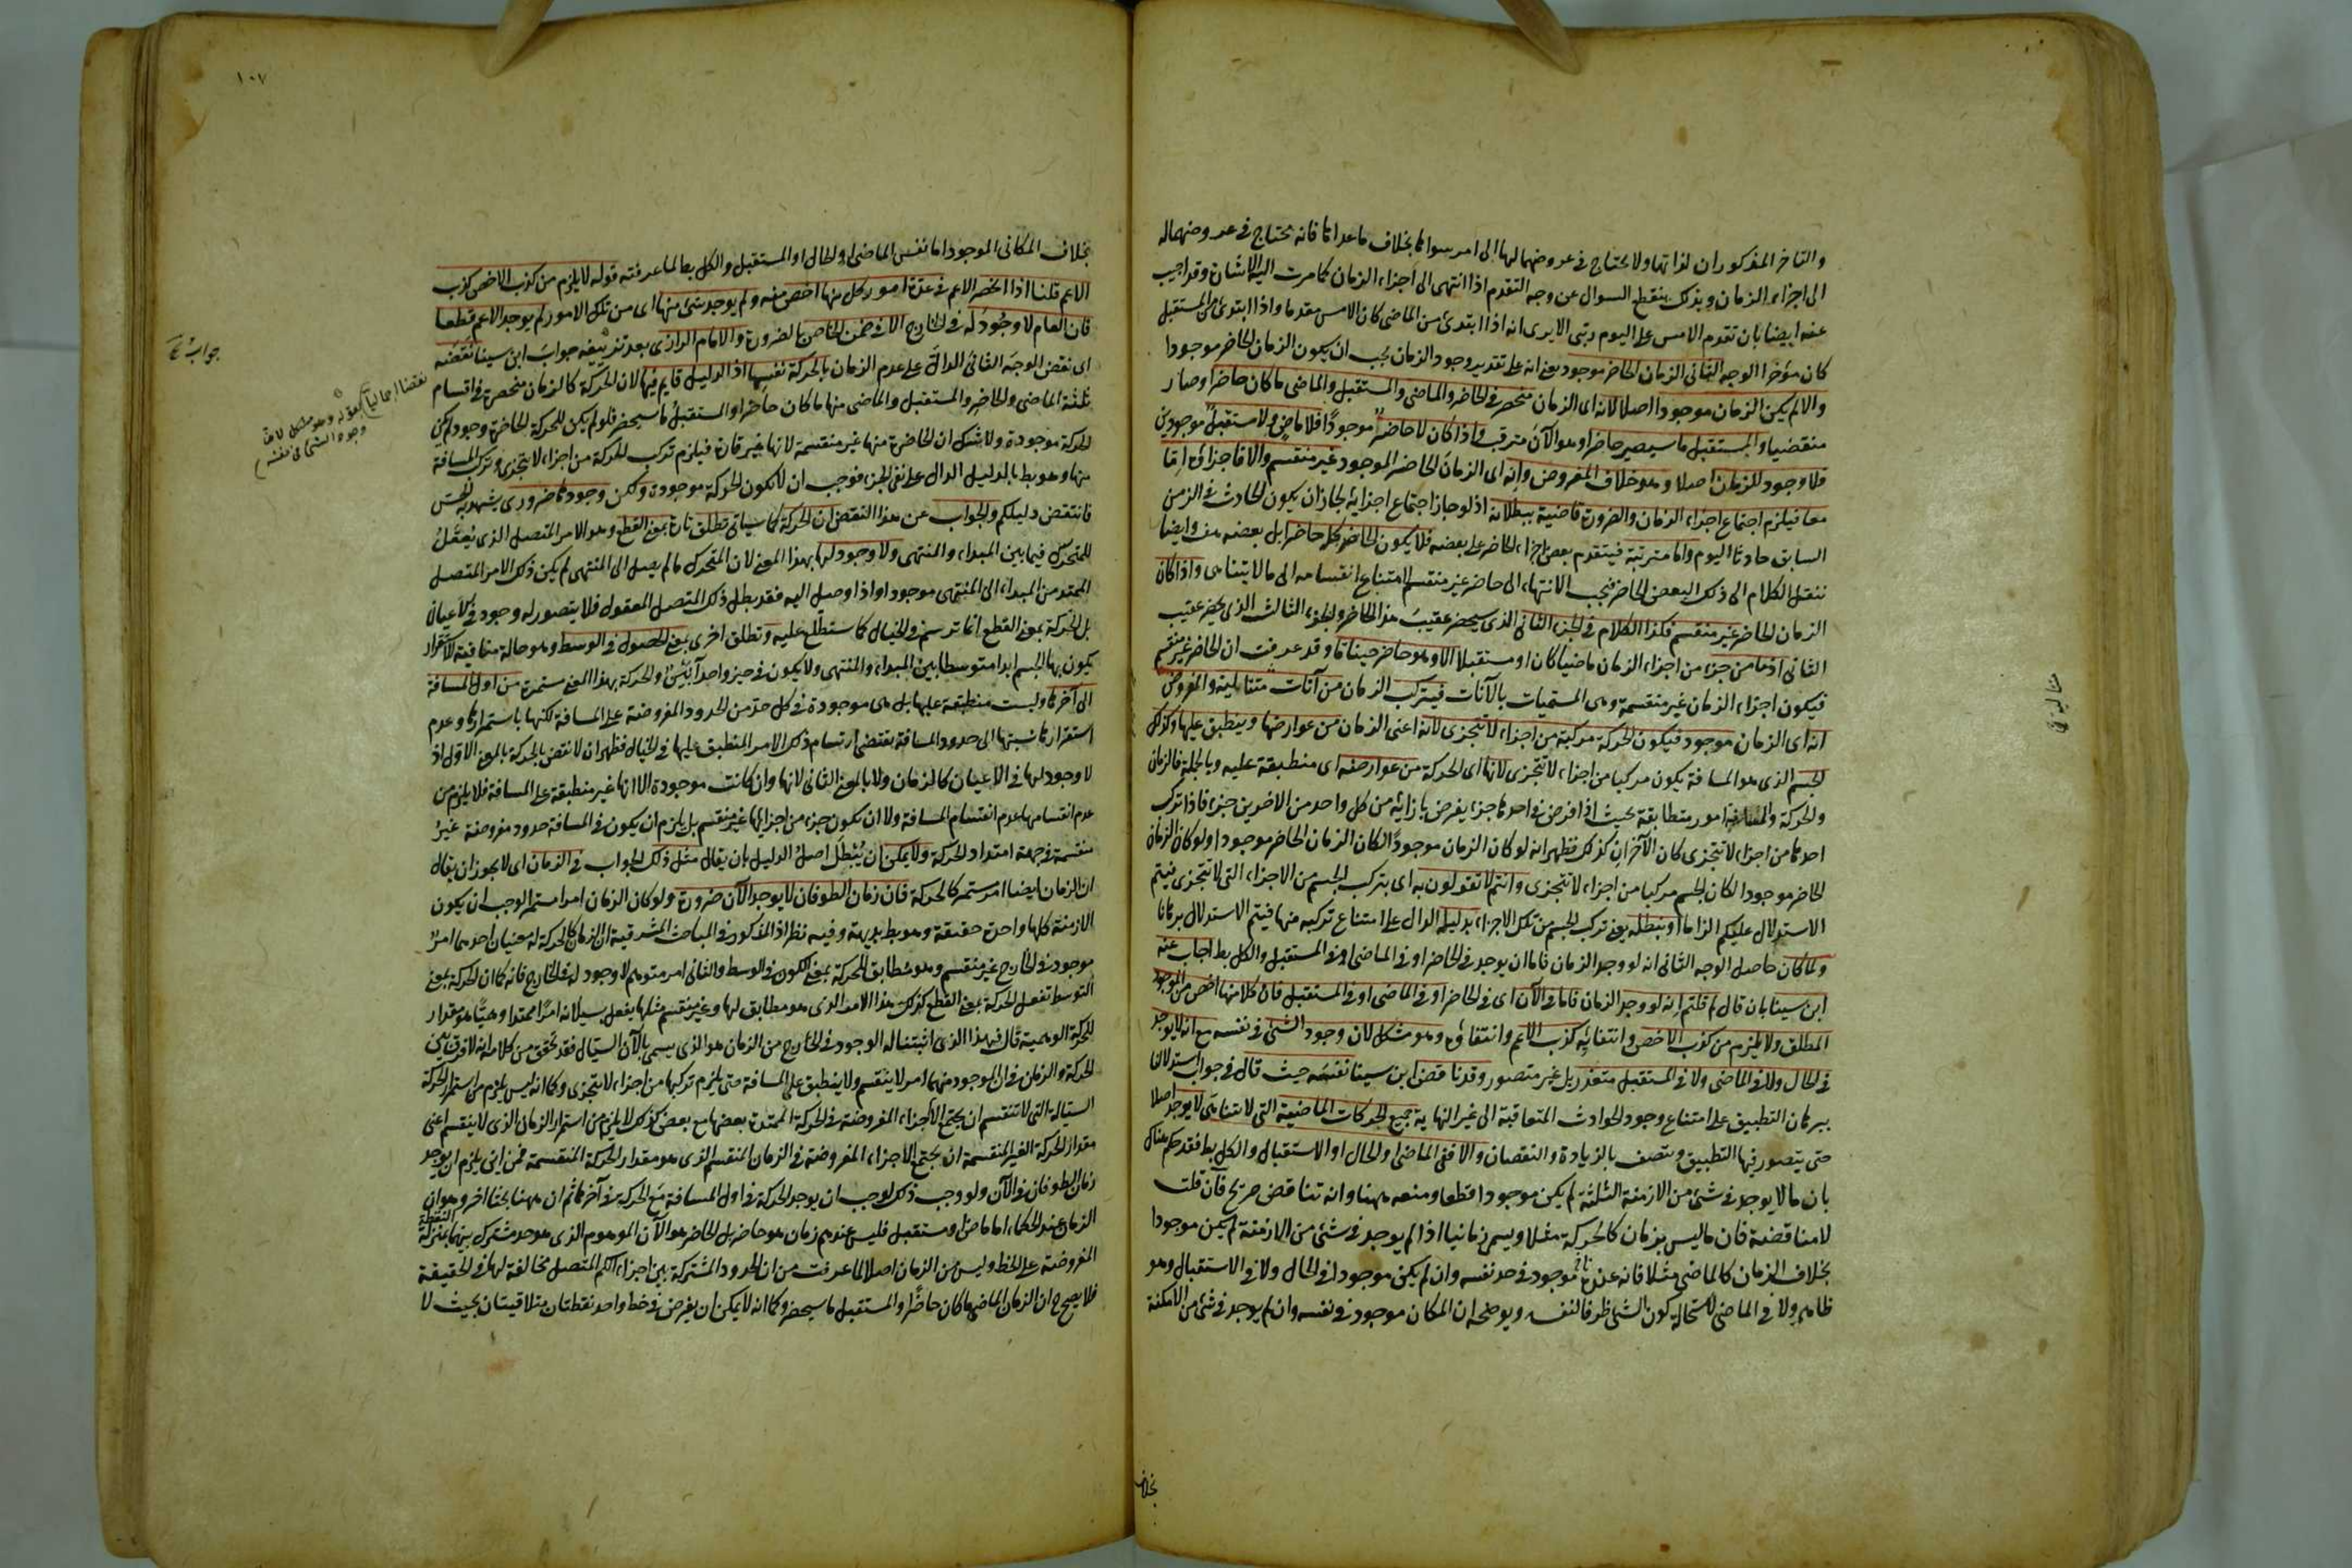 والتاخر المذكوران لذاتها ولا يحتاج في عروضهما لها الى امر سواها بخلاف ما عداها فانه يحتاج في عروضهما له
الى اجزاء الزمان وبذلك ينقطع السوال عن وجه التقدم اذا انتهى الى اجزاء الزمان كما مرت اليه الاشارة وقد اجيب
عنه ايضا بان تقدم الامس على اليوم رتبى الا يرى انه اذا ابتدئ من الماضى كان الامس مقدما واذا ابتدئ من المستقبل
كان مؤخرا الوجه الثانى الزمان الحاضر موجود يعنى انه على تقدير وجود الزمان يجب ان يكون الزمان الحاضر موجودا
والا لم يكن الزمان موجودا اصلا لانه اى الزمان منحصر في الحاضر والماضى والمستقبل والماضى ما كان حاضرا وصار
منقضيا والمستقبل ما سيصير حاضرا وهو الآن مترقب واذا كان لا حاضر موجودا فلا ماض ولا مستقبل موجودين
فلا وجود للزمان اصلا وهو خلاف المفروض وانه اى الزمان الحاضر الموجود غير منقسم والا فاجزاؤه اما
معا فيلزم اجتماع اجزاء الزمان والضرورة قاضية ببطلانه اذ لو جاز اجتماع اجزائه لجاز ان يكون الحادث في الزمن
السابق حادثا اليوم واما مترتبة فيتقدم بعض اجزاء الحاضر على بعضه فلا يكون الحاضر كله حاضرا بل بعضه هف وايضا
ننقل الكلام الى ذلك البعض الحاضر فيجب الانتهاء الى حاضر غير منقسم لامتناع انقسامه الى ما لا يتناهى واذا كان
الزمان الحاضر غير منقسم فكذا الكلام في الجزء الثانى الذى سيحضر عقيب هذا الحاضر والجزء الثالث الذى يحضر عقيب
الثانى اذ ما من جزء من اجزاء الزمان ماضيا كان او مستقبلا الا وهو حاضر حينا ما وقد عرفت ان الحاضر غير منقسم
فيكون اجزاء الزمان غير منقسمة وهى المسميات بالآنات فيتركب الزمان من آنات متتالية والمفروض
انه اى الزمان موجود فيكون الحركة مركبة من اجزاء لا تتجزى لانه اعنى الزمان من عوارضها وينطبق عليها وكذلك
الجسم الذى هو المسافة يكون مركبا من اجزاء لا تتجزى لانها اى الحركة من عوارضه اى منطبقة عليه وبالجملة فالزمان
والحركة والمسافة امور متطابقة بحيث اذا فرض في احدها جزء يفرض بازائه من كل واحد من الاخرين جزء فاذا تركب
احدها من اجزاء لا تتجزى كان الآخران كذلك فظهر انه لو كان الزمان موجودا لكان الزمان الحاضر موجودا ولو كان الزمان
الحاضر موجودا لكان الجسم مركبا من اجزاء لا تتجزى وانتم لا تقولون به اى بتركب الجسم من الاجزاء التى لا تتجزى فيتم
الاستدلال عليكم الزاما او نبطله يعنى تركب الجسم من تلك الاجزاء بدليله الدال على امتناع تركبه منها فيتم الاستدلال برهانا
ولما كان حاصل الوجه الثانى انه لو وجد الزمان فاما ان يوجد في الحاضر او في الماضى او في المستقبل والكل بط اجاب عنه
ابن سينا بان قال لم قلتم انه لو وجد الزمان فاما في الآن اى في الحاضر او في الماضى او في المستقبل فان كلا منها اخص من الموجود
المطلق ولا يلزم من كذب الاخص وانتفائه كذب الاعم وانتفاؤه وهو مشكل لان وجود الشئ في نفسه مع انه لا يوجد
في الحال ولا في الماضى ولا في المستقبل متعذر بل غير متصور وقد ناقض ابن سينا نفسه حيث قال في جواب استدلالنا
ببرهان التطبيق على امتناع وجود الحوادث المتعاقبة الى غير النهاية جميع الحركات الماضية التى لا تتناهى لا يوجد اصلا
حتى يتصور فيها التطبيق ويتصف بالزيادة والنقصان والا ففى الماضى او الحال او الاستقبال والكل بط فقد حكم هناك
بان ما لا يوجد في شئ من الازمنة الثلثة لم يكن موجودا قطعا ومنعه ههنا وانه تناقض صريح فان قلت
لا مناقضة فان ما ليس بزمان كالحركة مثلا ويسمى زمانيا اذا لم يوجد في شئ من الازمنة لم يكن موجودا
بخلاف الزمان كالماضى مثلا فانه عندنا موجود في حد نفسه وان لم يكن موجودا في الحال ولا في الاستقبال وهو
ظاهر ولا في الماضى لاستحالة كون الشئ ظرفا لنفسه ويوضحه ان المكان موجود في نفسه وان لم يوجد في شئ من الامكنة
بخلاف
١٠٧
بخلاف المكانى الموجود اما نفس الماضى او الحال او المستقبل والكل بط لما عرفته قوله لا يلزم من كذب الاخص كذب
الاعم قلنا اذا انحصر الاعم في عدة امور كل منها اخص منه ولم يوجد شئ منها اى من تلك الامور لم يوجد الاعم قطعا
فان العام لا وجود له في الخارج الا في ضمن الخاص بالضرورة والامام الرازى بعد تزييفه جواب ابن سينا نقضه
اى نقض الوجه الثانى الدال على عدم الزمان بالحركة نفسها اذ الدليل قايم فيها لان الحركة كالزمان منحصرة في اقسام
ثلثة الماضى والحاضر والمستقبل والماضى منها ما كان حاضرا والمستقبل ما سيحضر فلو لم يكن للحركة الحاضرة وجود لم يكن
الحركة موجودة ولا شك ان الحاضرة منها غير منقسمة لانها غير قارة فيلزم تركب الحركة من اجزاء لا تتجزى وتركب المسافة
منها وهو بط بالدليل الدال على نفى الجزء فوجب ان لا تكون الحركة موجودة ولكن وجودها ضرورى يشهد به الحس
فانتقض دليلكم والجواب عن هذا النقض ان الحركة كما سياتى تطلق تارة بمعنى القطع وهو الامر المتصل الذى يعقل
للمتحرك فيما بين المبداء والمنتهى ولا وجود لها بهذا المعنى لان المتحرك ما لم يصل الى المنتهى لم يكن ذلك الامر المتصل
الممتد من المبداء الى المنتهى موجودا واذا وصل اليه فقد بطل ذلك المتصل المعقول فلا يتصور له وجود في الاعيان
بل الحركة بمعنى القطع انما ترتسم في الخيال كما ستطلع عليه وتطلق اخرى بمعنى الحصول في الوسط وهو حالة منافية للاستقرار
يكون بها الجسم ابدا متوسطا بين المبداء والمنتهى ولا يكون في حيز واحد آنين والحركة بهذا المعنى مستمرة من اول المسافة
الى آخرها وليست منطبقة عليها بل هى موجودة في كل حد من الحدود المفروضة على المسافة لكنها باستمرارها وعدم
استقرار نسبتها الى حدود المسافة يقتضى ارتسام ذلك الامر المنطبق عليها في الخيال فظهر ان لا نقض بالحركة بالمعنى الاول اذ
لا وجود لها في الاعيان كالزمان ولا بالمعنى الثانى لانها وان كانت موجودة الا انها غير منطبقة على المسافة فلا يلزم من
عدم انقسامها عدم انقسام المسافة ولا ان يكون جزء من اجزايها غير منقسم بل يلزم ان يكون في المسافة حدود مفروضة غير
منقسمة في جهة امتداد الحركة ولا يمكن ان يبطل اصل الدليل بان يقال مثل ذلك الجواب في الزمان اى لا يجوز ان يقال
ان الزمان ايضا امر مستمر كالحركة فان زمان الطوفان لا يوجد الآن ضرورة ولو كان الزمان امرا مستمرا لوجب ان يكون
الازمنة كلها واحدة حقيقة وهو بط بديهة وفيه نظر اذ المذكور في المباحث المشرقية ان الزمان كالحركة له معنيان احدهما امر
موجود في الخارج غير منقسم وهو مطابق للحركة بمعنى الكون في الوسط والثانى امر متوهم لا وجود له في الخارج فانه كما ان الحركة بمعنى
التوسط تفعل الحركة بمعنى القطع كذلك هذا الامر الذى هو مطابق لها وغير منقسم مثلها يفعل بسيلانه امرا ممتدا وهميا هو مقدار
للحركة الوهمية قال فهذا الذى اثبتنا له الوجود في الخارج من الزمان هو الذى يسمى بالآن السيال فقد تحقق من كلامه انه لا فرق بين
الحركة والزمان في ان الموجود منهما امر لا ينقسم ولا ينطبق على المسافة حتى يلزم تركبها من اجزاء لا تتجزى وكما انه ليس يلزم من استمرار الحركة
السيالة التى لا تنقسم ان يجتمع الاجزاء المفروضة في الحركة الممتدة بعضها مع بعض كذلك لا يلزم من استمرار الزمان الذى لا ينقسم اعنى
مقدار الحركة الغير المنقسمة ان يجتمع الاجزاء المفروضة في الزمان المنقسم الذى هو مقدار الحركة المنقسمة فمن اين يلزم ان يوجد
زمان الطوفان في الآن ولو وجب ذلك لوجب ان يوجد الحركة في اول المسافة مع الحركة في آخرها ثم ان ههنا بحثا اخر وهو ان
الزمان عند الحكماء اما ماض او مستقبل فليس عندهم زمان هو حاضر بل الحاضر هو الآن الموهوم الذى هو حد مشترك بينهما بمنزلة النقطة
المفروضة على الخط وليس من الزمان اصلا لما عرفت من ان الحدود المشتركة بين اجزاء الكم المتصل مخالفة لها في الحقيقة
فلا يصح ح ان الزمان الماضى ما كان حاضرا والمستقبل ما سيحضر وكما انه لا يمكن ان يفرض في خط واحد نقطتان متلاقيتان بحيث لا
نقضا اجماليا
بقوله وهو مشكل لان
وجود الشئ في نفسه